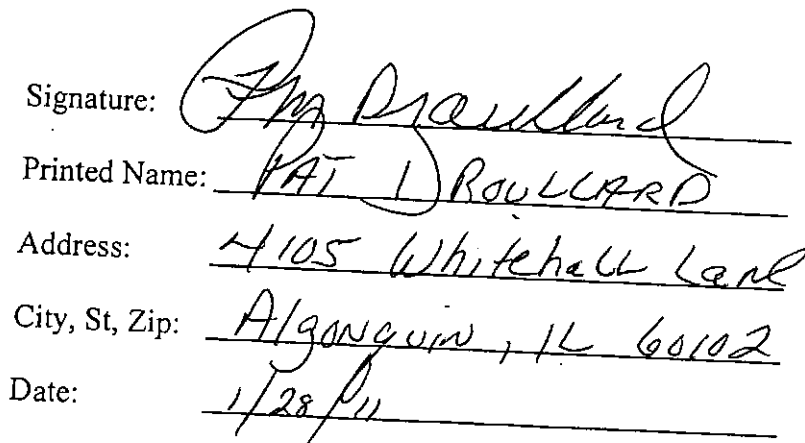 Signature:
Printed Name: PAT DROULLARD
Address: 4105 Whitehall Lane
City, St, Zip: Algonquin, IL 60102
Date: 1/28/11